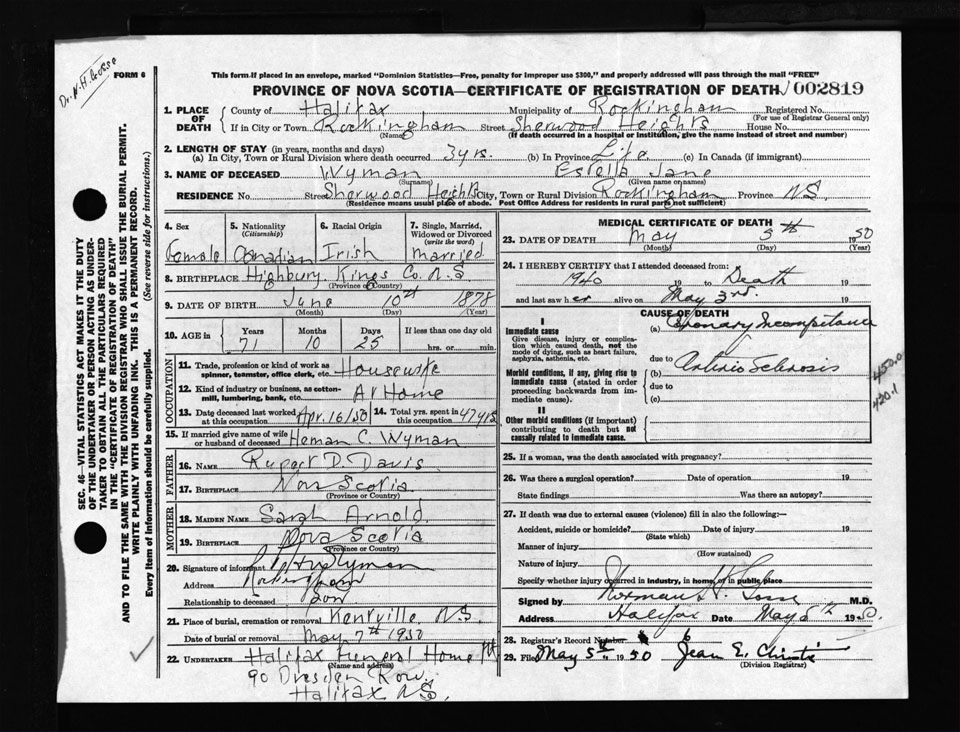 Dr. N. H. Gosse
FORM 6
This form if placed in an envelope, marked "Dominion Statistics—Free, penalty for improper use $300," and properly addressed will pass through the mail "FREE"
PROVINCE OF NOVA SCOTIA—CERTIFICATE OF REGISTRATION OF DEATH 002819
1. PLACE OF DEATH
County of Halifax Municipality of Rockingham Registered No.
(For use of Registrar General only)
If in City or Town Rockingham Street Sherwood Heights House No.
(Name) (If death occurred in a hospital or institution, give the name instead of street and number)
2. LENGTH OF STAY (in years, months and days)
(a) In City, Town or Rural Division where death occurred 3 yrs. (b) In Province Life (c) In Canada (if immigrant)
3. NAME OF DECEASED Wyman Estella Jane
(Surname) (Given name or names)
RESIDENCE No. Street Sherwood Heights City, Town or Rural Division Rockingham Province N.S.
(Residence means usual place of abode. Post Office Address for residents in rural parts not sufficient)
4. Sex
Female
5. Nationality
(Citizenship)
Canadian
6. Racial Origin
Irish
7. Single, Married, Widowed or Divorced
(write the word)
married
8. BIRTHPLACE Highbury, Kings Co. N.S
(Province or Country)
9. DATE OF BIRTH June 10th 1878
(Month) (Day) (Year)
10. AGE in
Years Months Days If less than one day old
71 10 25 hrs. or min.
OCCUPATION
11. Trade, profession or kind of work as spinner, teamster, office clerk, etc. Housewife
12. Kind of industry or business, as cotton-mill, lumbering, bank, etc. At Home
13. Date deceased last worked at this occupation Apr. 16/50
14. Total yrs. spent in this occupation 47 yrs
15. If married give name of wife or husband of deceased Heman C. Wyman
FATHER
16. NAME Rupert D. Davis
17. BIRTHPLACE Nova Scotia
(Province or Country)
MOTHER
18. MAIDEN NAME Sarah Arnold
19. BIRTHPLACE Nova Scotia
(Province or Country)
20. Signature of informant Wyman
Address Rockingham
Relationship to deceased Son
21. Place of burial, cremation or removal Kentville N.S.
Date of burial or removal May 7th 1950
22. UNDERTAKER Halifax Funeral Home
(Name and address)
90 Dresden Row.
Halifax N.S.
MEDICAL CERTIFICATE OF DEATH
23. DATE OF DEATH May 5th 1950
(Month) (Day) (Year)
24. I HEREBY CERTIFY that I attended deceased from:
1940 19 to Death 19
and last saw her alive on May 3rd. 19
CAUSE OF DEATH
I
Immediate cause
Give disease, injury or complication which caused death, not the mode of dying, such as heart failure, asphyxia, asthenia, etc.
(a) Coronary Incompetance
due to
Morbid conditions, if any, giving rise to immediate cause (stated in order proceeding backwards from immediate cause).
(b) Arterio Sclerosis
due to
(c)
450.0
420.1
II
Other morbid conditions (if important) contributing to death but not causally related to immediate cause.
25. If a woman, was the death associated with pregnancy?
26. Was there a surgical operation? Date of operation 19
State findings Was there an autopsy?
27. If death was due to external causes (violence) fill in also the following:—
Accident, suicide or homicide? Date of injury 19
(State which)
Manner of injury
(How sustained)
Nature of injury
Specify whether injury occurred in industry, in home, or in public place
Signed by Norman H. Gosse M.D.
Address Halifax Date May 5th 1950
28. Registrar's Record Number 6
29. Filed May 5th 1950 Jean E. Christie
(Division Registrar)
SEC. 46—VITAL STATISTICS ACT MAKES IT THE DUTY
OF THE UNDERTAKER OR PERSON ACTING AS UNDER-
TAKER TO OBTAIN ALL THE PARTICULARS REQUIRED
IN THE "CERTIFICATE OF REGISTRATION OF DEATH"
AND TO FILE THE SAME WITH THE DIVISION REGISTRAR WHO SHALL ISSUE THE BURIAL PERMIT.
WRITE PLAINLY WITH UNFADING INK. THIS IS A PERMANENT RECORD.
Every item of Information should be carefully supplied. (See reverse side for instructions.)